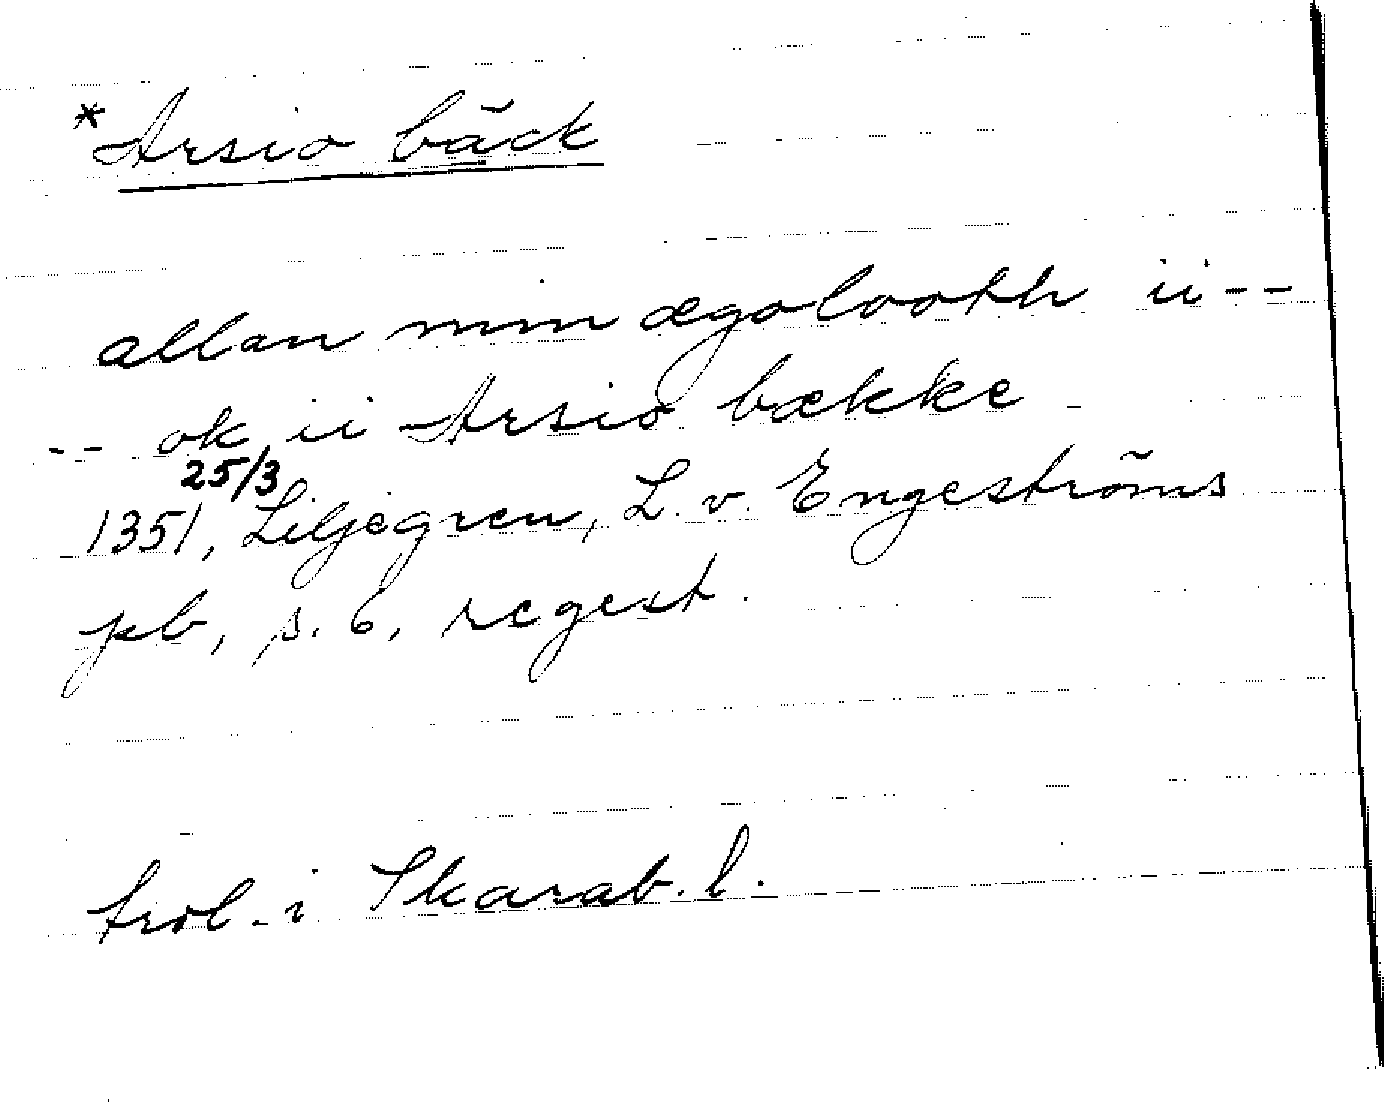 *Arsio bäck
allan min ægolooth ii --
-- ok ii Arsio bække
25/3
1351, Liljegren, L. v. Engeströms
pb, s. 6, regest.
trol. i Skarab. l.